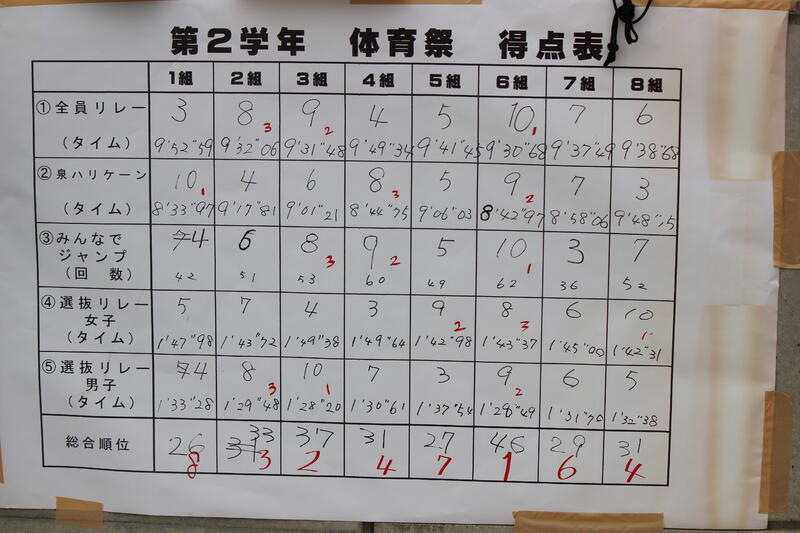 第2学年 体育祭 得点表
1組 2組 3組 4組 5組 6組 7組 8組
①全員リレー 3 8 9 4 5 10 7 6
3 2 1
(タイム) 9'52"59 9'32"06 9'31"48 9'49"34 9'41"45 9'30"68 9'37"49 9'38"68
②泉ハリケーン 10 4 6 8 5 9 7 3
1 3 2
(タイム) 8'33"97 9'17"81 9'01"21 8'44"75 9'06"03 8'42"97 8'58"06 9'48"
③みんなで
ジャンプ 4 6 8 9 5 10 3 7
3 2 1
(回数) 42 51 53 60 49 62 36 52
④選抜リレー 5 7 4 3 9 8 6 10
女子 2 3 1
(タイム) 1'47"98 1'43"72 1'49"38 1'49"64 1'42"98 1'43"37 1'45"00 1'42"31
⑤選抜リレー 4 8 10 7 3 9 6 5
男子 3 1 2
(タイム) 1'33"28 1'29"48 1'28"20 1'30"61 1'37"54 1'28"49 1'31"70 1'32"38
総合順位 26 33 37 31 27 46 29 31
8 3 2 4 7 1 6 4